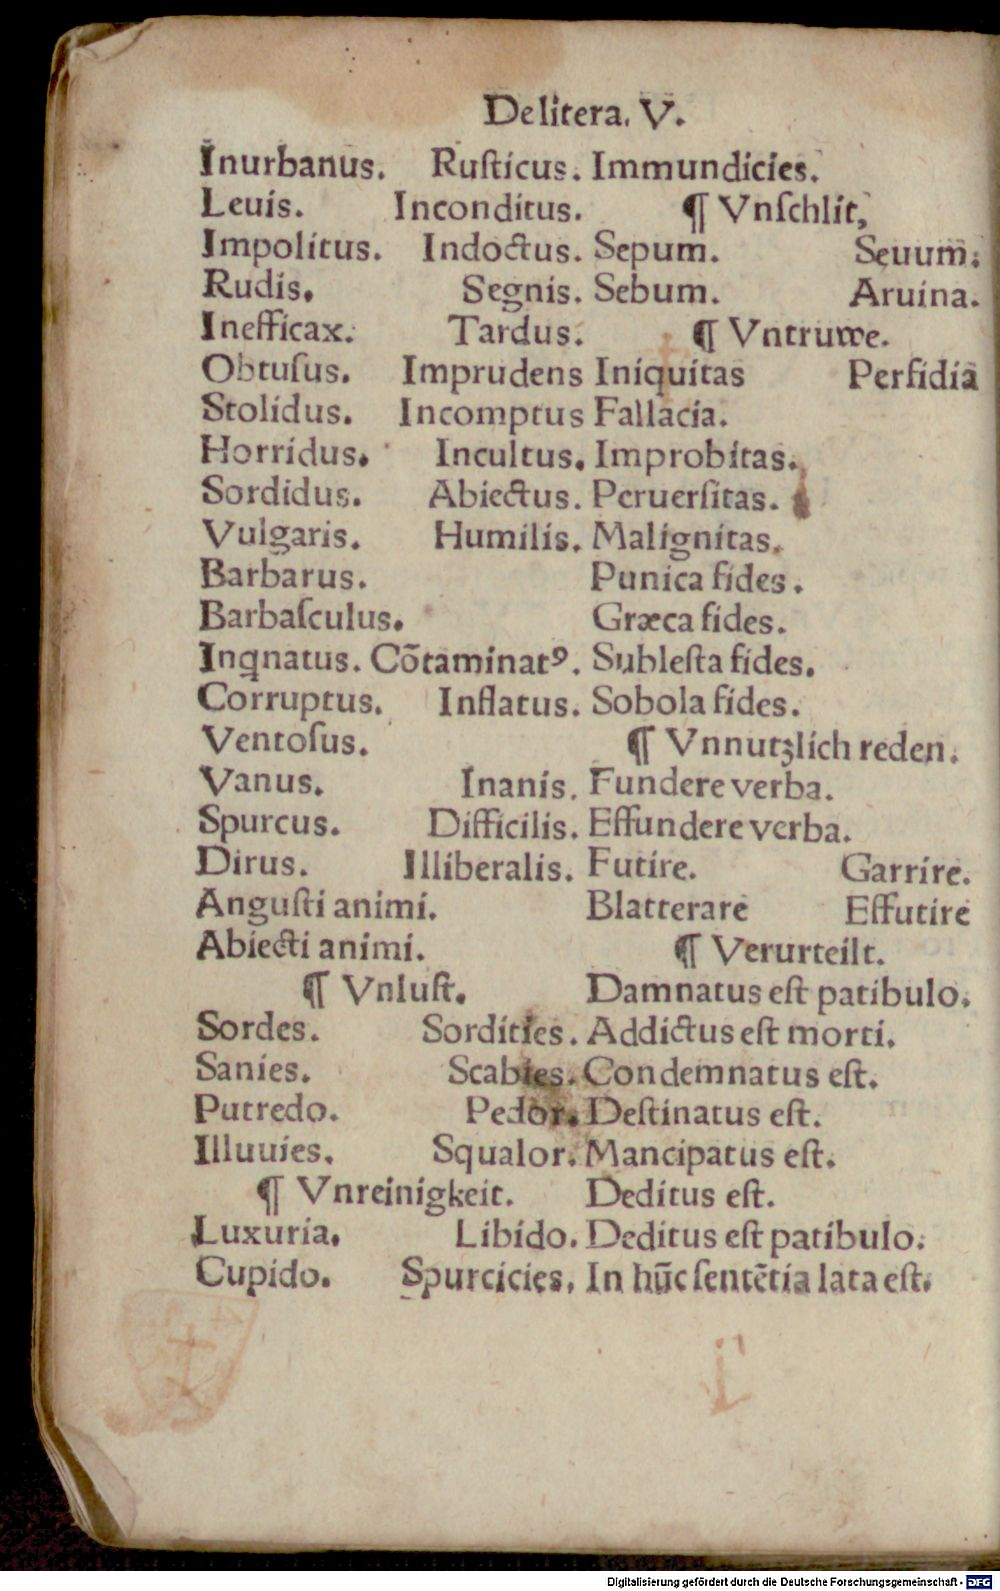 De litera. V.
Inurbanus. Rusticus.
Leuis. Inconditus.
Impolitus. Indoctus.
Rudis. Segnis.
Inefficax. Tardus.
Obtusus. Imprudens
Stolidus. Incomptus
Horridus. Incultus.
Sordidus. Abiectus.
Vulgaris. Humilis.
Barbarus.
Barbasculus.
Inqnatus. Cõtaminatꝰ.
Corruptus. Inflatus.
Ventosus.
Vanus. Inanis.
Spurcus. Difficilis.
Dirus. Illiberalis.
Angusti animi.
Abiecti animi.
¶ Vnlust.
Sordes. Sordities.
Sanies. Scabies.
Putredo. Pedor.
Illuuies. Squalor.
¶ Vnreinigkeit.
Luxuria. Libido.
Cupido. Spurcicies.
Immundicies.
¶ Vnschlit,
Sepum. Seuum.
Sebum. Aruina.
¶ Vntruwe.
Iniquitas Perfidia
Fallacia.
Improbitas.
Peruersitas.
Malignitas.
Punica fides.
Græca fides.
Sublesta fides.
Sobola fides.
¶ Vnnutzlich reden.
Fundere verba.
Effundere verba.
Futire. Garrire.
Blatterare Effutire
¶ Verurteilt.
Damnatus est patibulo.
Addictus est morti.
Condemnatus est.
Destinatus est.
Mancipatus est.
Deditus est.
Deditus est patibulo.
In hũc sentẽtia lata est.
Digitalisierung gefördert durch die Deutsche Forschungsgemeinschaft - DFG